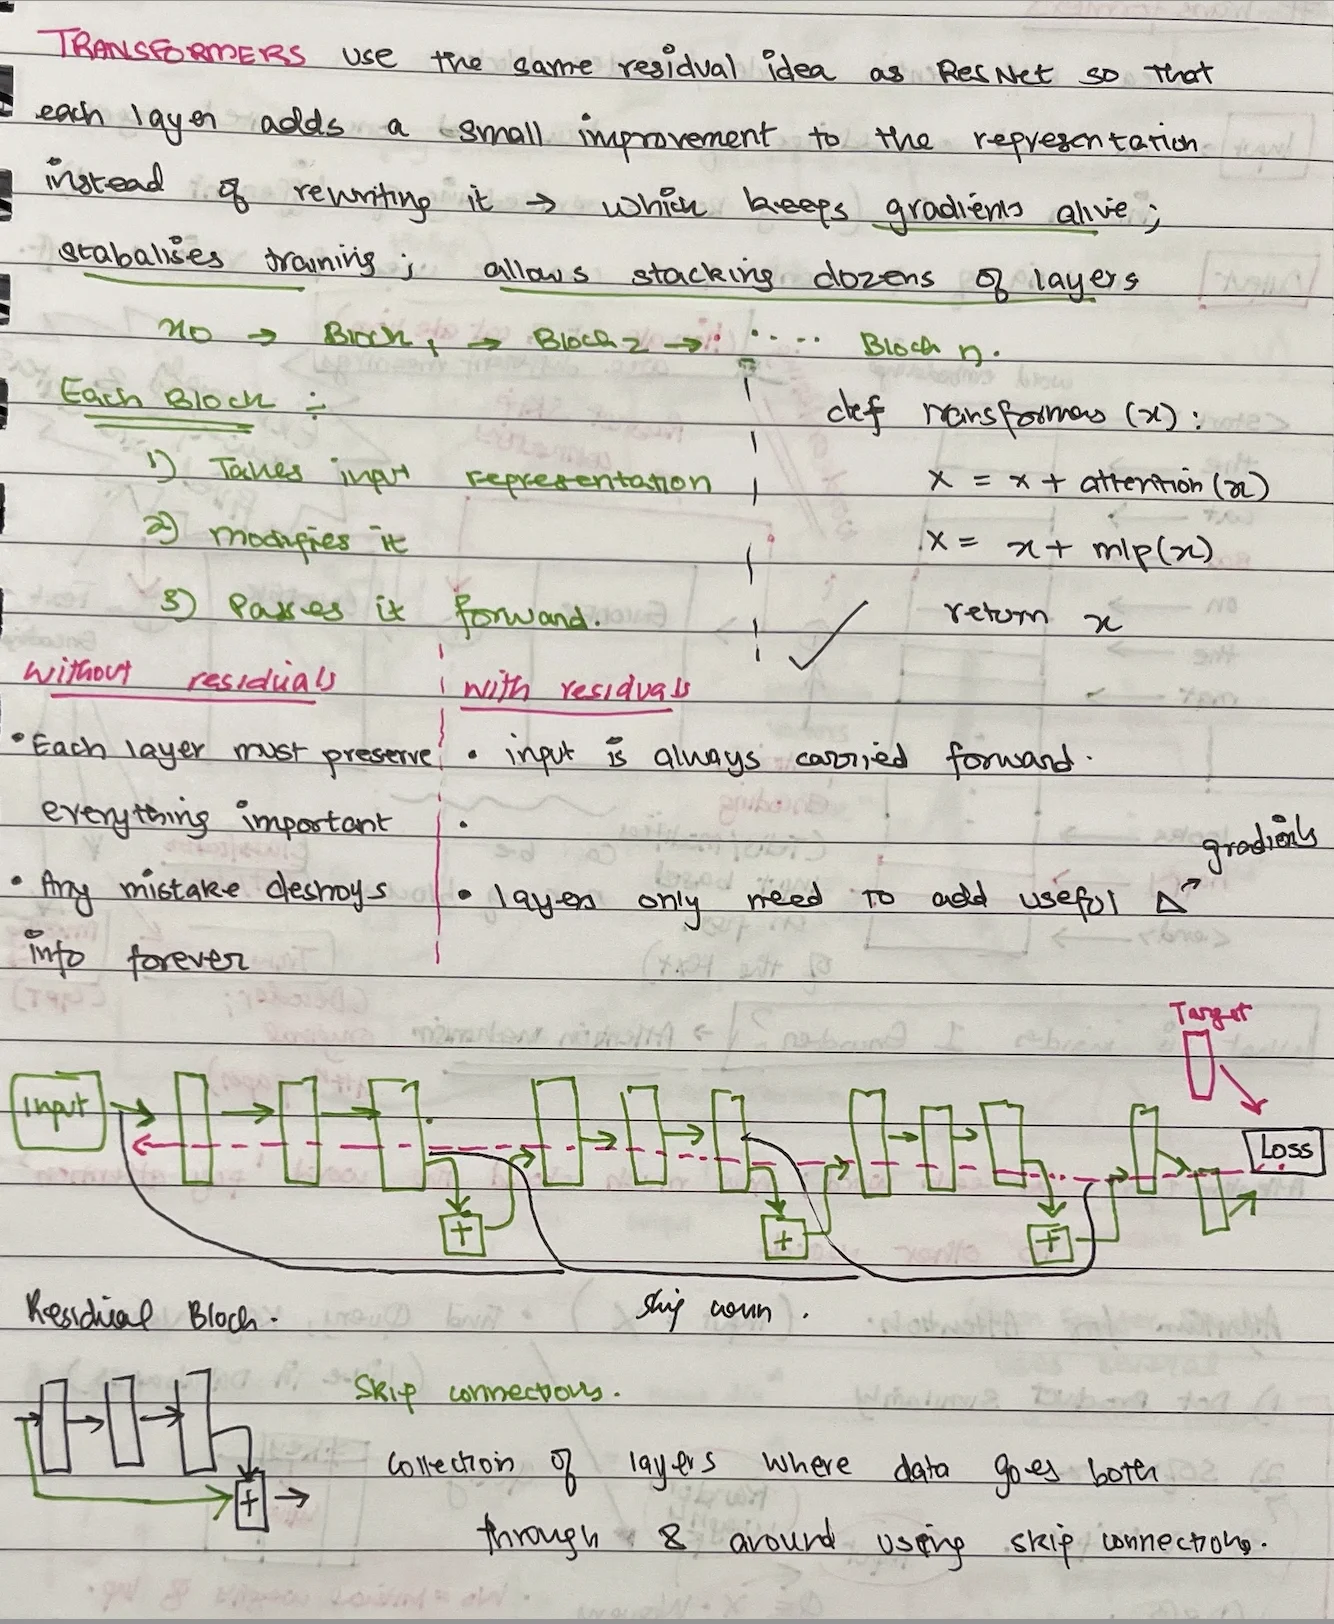 TRANSFORMERS use the same residual idea as ResNet so that
each layer adds a small improvement to the representation
instead of rewriting it → which keeps gradients alive;
stabalises training; allows stacking dozens of layers
x0 → Block 1 → Block 2 → ..... Block n.
Each Block ÷
1) Takes input representation
2) modifies it
3) Passes it forward.
def Transformers (x):
x = x + attention(x)
x = x + mlp(x)
return x
without residuals
• Each layer must preserve
everything important
• Any mistake destroys
info forever
with residuals
• input is always carried forward.
•
• layers only need to add useful Δ → gradients
Target
Input
Loss
+
+
+
Residual Block.
skip conn.
Skip connections.
+
collection of layers where data goes both
through & around using skip connections.